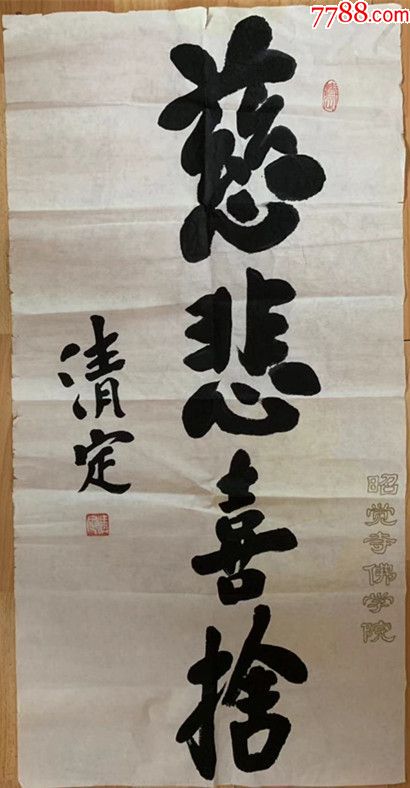 7788.com
慈悲喜捨
清定
昭觉寺佛学院